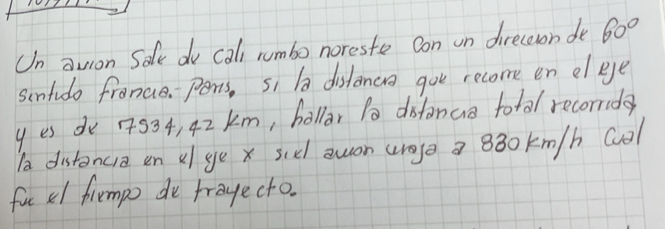 Un avion Sale de cali rumbo noreste Con un direccion de 60°
sentido francia. Paris. si la distancia que recorre en el eje
y es de 7934,42 km, hallar la distancia total recorrida
la distancia en el eje x si el avion viaja a 830 km/h Cual
fue el tiempo de trayecto.